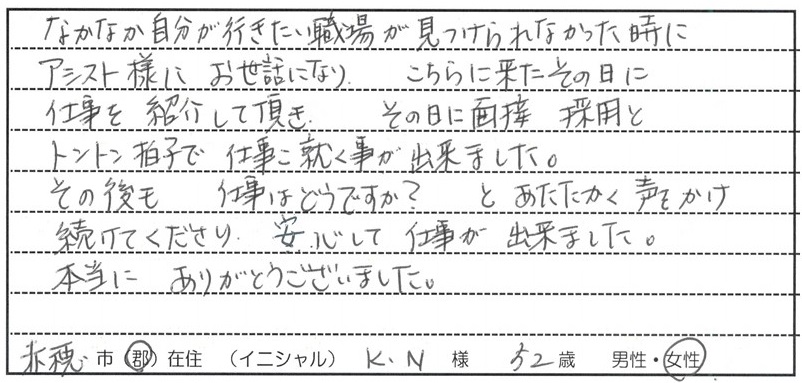 なかなか自分が行きたい職場が見つけられなかった時に
アシスト様に お世話になり. こちらに来たその日に
仕事を 紹介して頂き. その日に面接 採用と
トントン拍子で 仕事に就く事が出来ました。
その後も 仕事はどうですか? と あたたかく声をかけ
続けてくださり. 安心して 仕事が 出来ました。
本当に ありがとうございました。
赤穂 市・郡 在住 (イニシャル) K.N 様 52歳 男性・女性